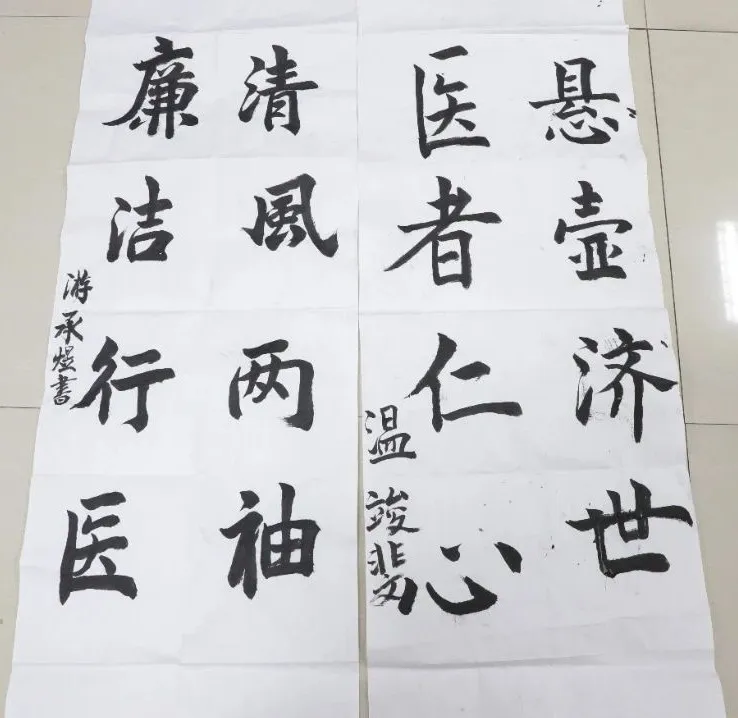 悬壶济世
医者仁心
温竣斐
清风两袖
廉洁行医
游承煜书